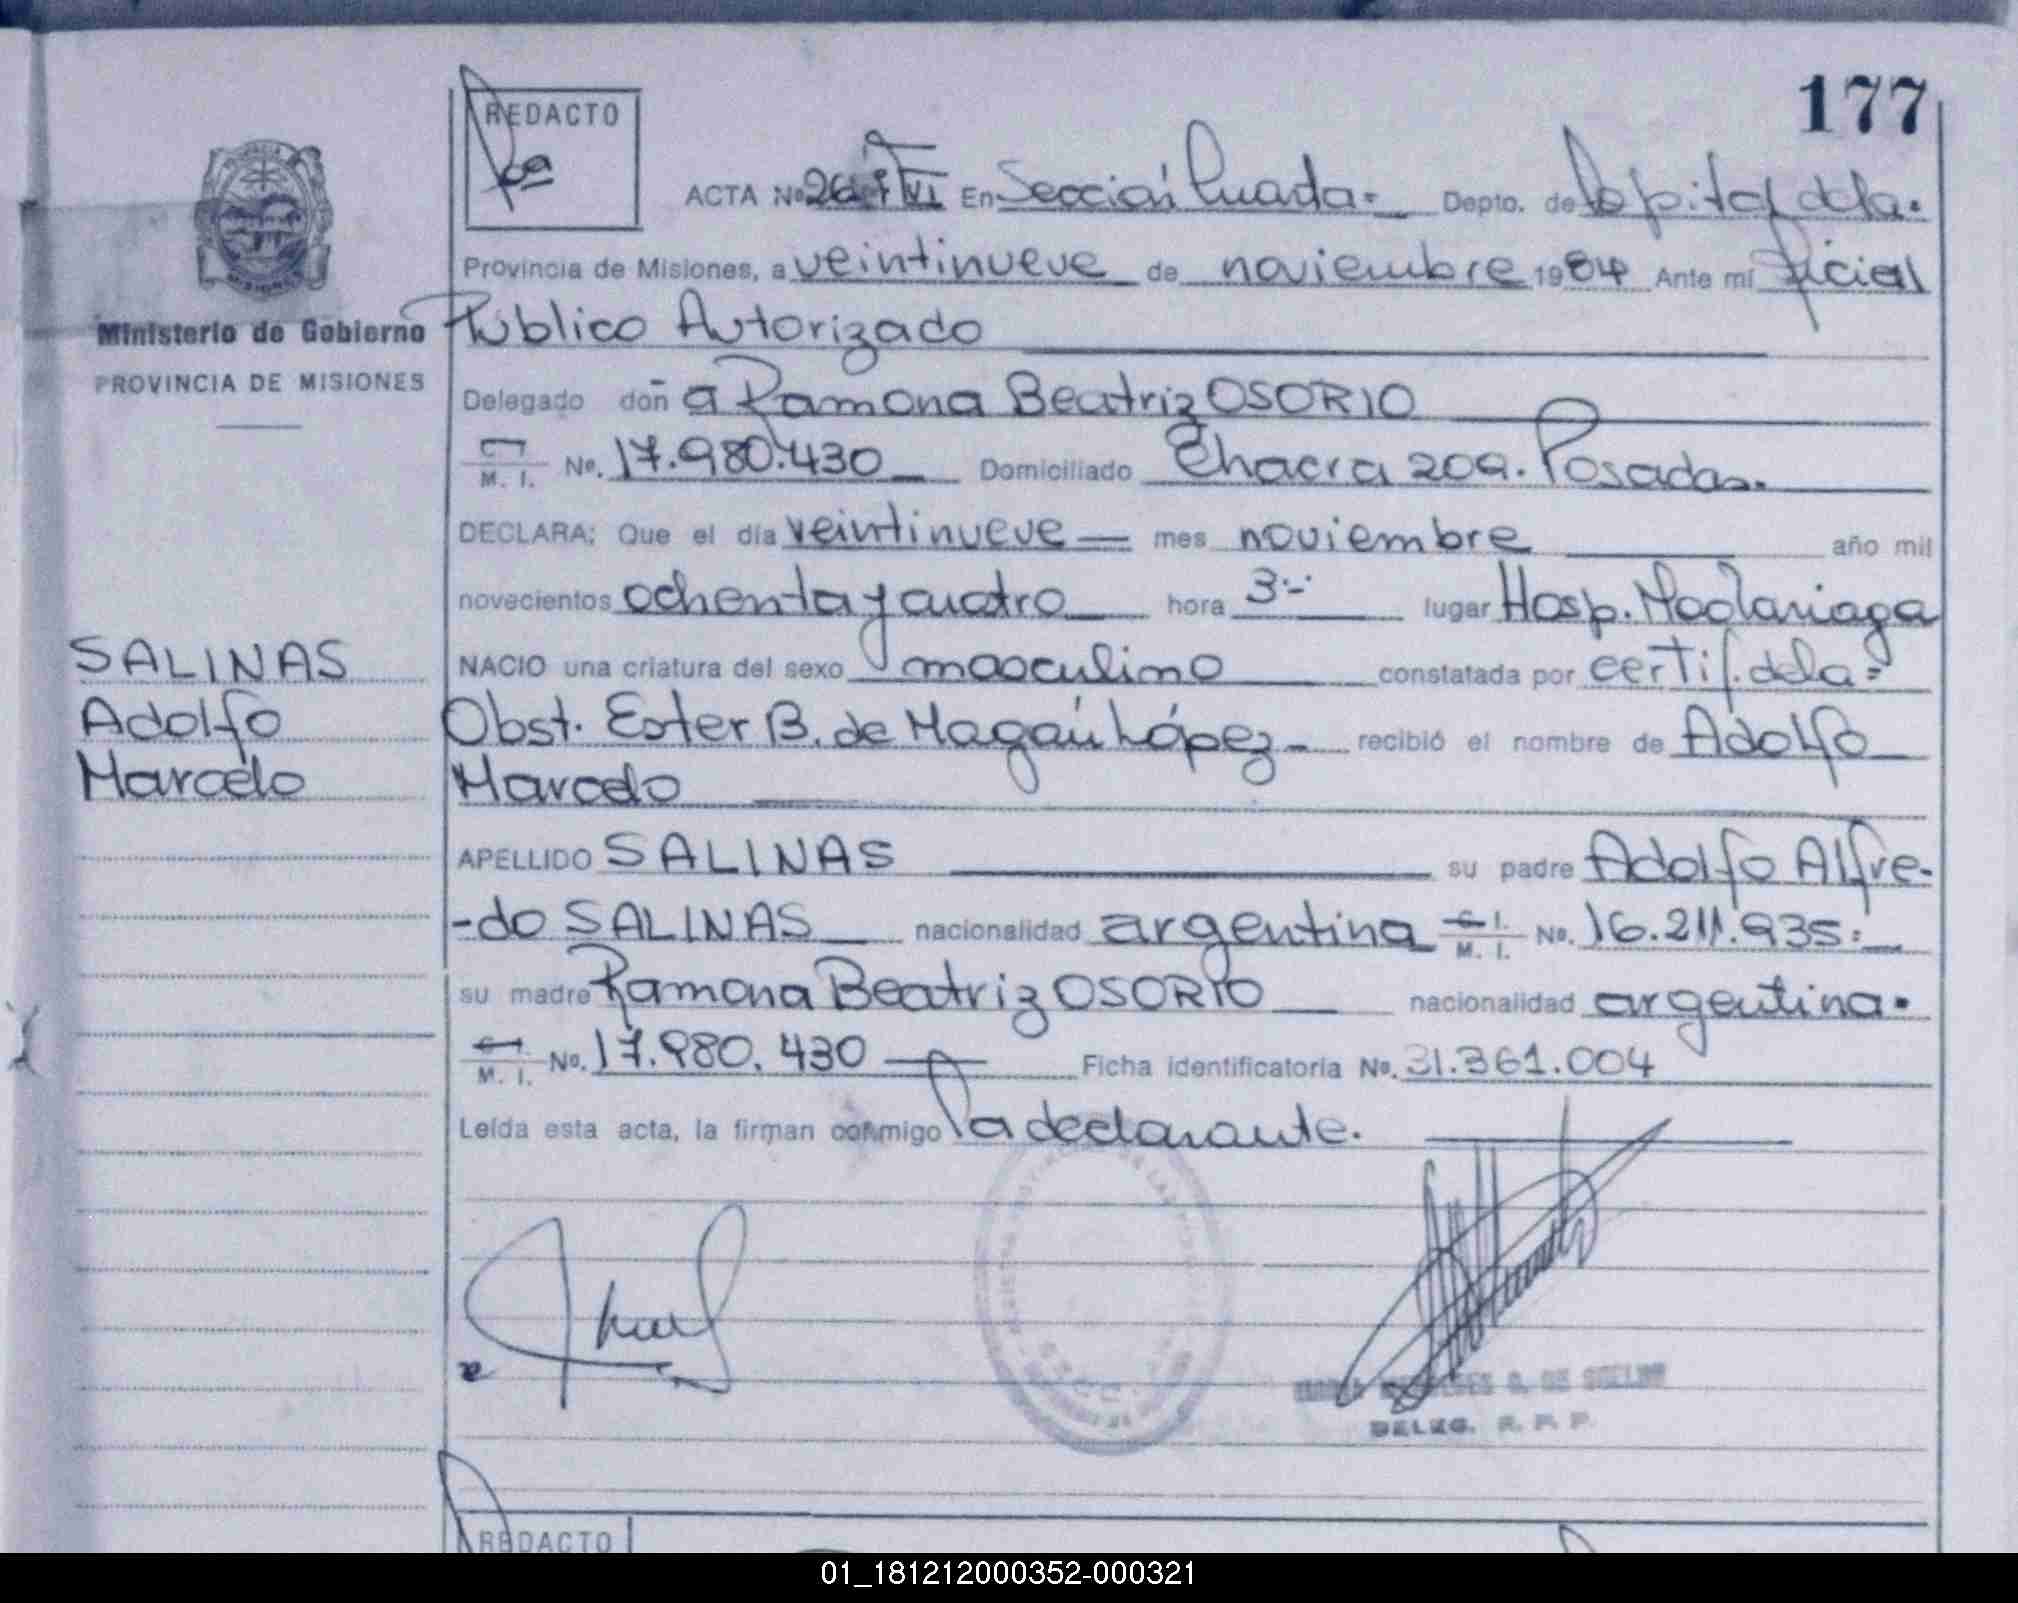 177
REDACTO
ACTA Nº En Sección Cuarta Depto. de Capital de la
Provincia de Misiones, a veintinueve de noviembre 1984 Ante mí Oficial
Ministerio de Gobierno
Público Autorizado
PROVINCIA DE MISIONES
Delegado doña Ramona Beatriz OSORIO
M. I. Nº. 17.980.430 Domiciliado Chacra 209. Posadas.
DECLARA: Que el día veintinueve mes noviembre año mil
novecientos ochenta y cuatro hora 3 lugar Hosp. Madariaga
SALINAS
Adolfo
Marcelo
NACIO una criatura del sexo masculino constatada por certif. de la
Obst. Ester B. de López recibió el nombre de Adolfo
Marcelo
APELLIDO SALINAS su padre Adolfo Alfre-
-do SALINAS nacionalidad argentina C. I. M. I. Nº. 16.211.935
su madre Ramona Beatriz OSORIO nacionalidad argentina.
C. I. M. I. Nº. 17.980.430 Ficha identificatoria Nº. 31.361.004
Leída esta acta, la firman conmigo la declarante.
DELEG. R. P. P.
REDACTO
01_181212000352-000321